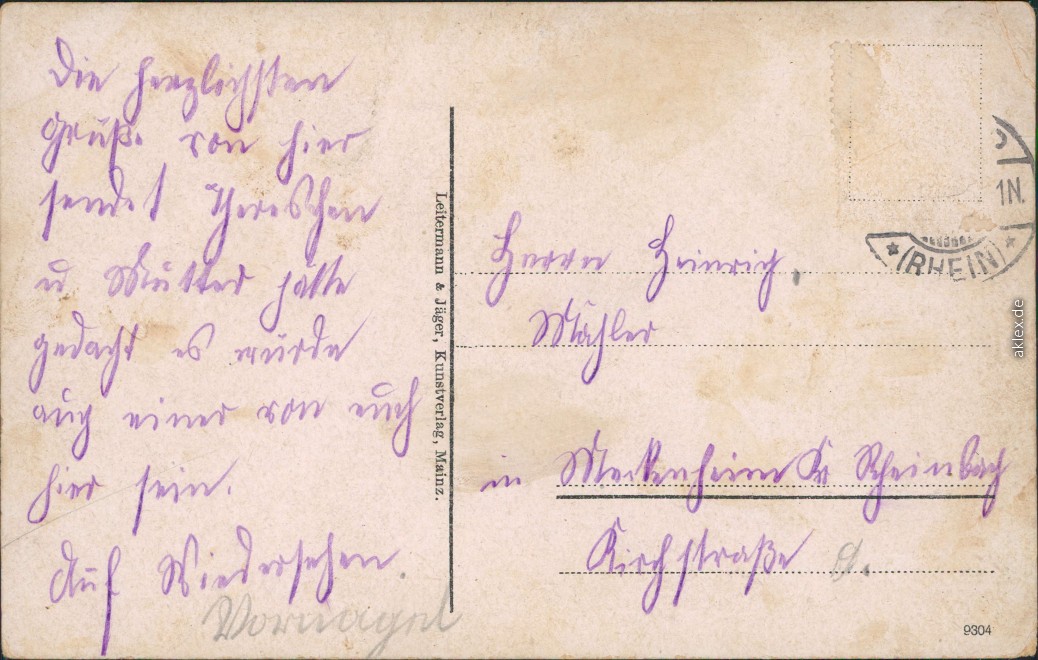 Die herzlichsten
Grüße von hier
sendet Thereschen
u Mutter hätte
gedacht es würde
auch einer von euch
hier sein.
Auf Wiedersehen.
Vornagel
Leitermann & Jäger, Kunstverlag, Mainz.
1N.
*(RHEIN)*
Herrn Heinrich
Mähler
in Meckenheim Kr Rheinbach
Kirchstraße
9304
aklex.de